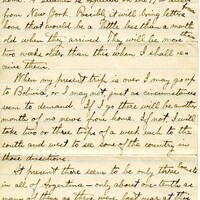 from New York. Possibly it will bring letters
from home that would be little less than a month
old when they arrived. They will be more than
two weeks older than this when I shall re-
ceive them.
When my present trip is over I may go up
to Bolivia, or I may not, just as circumstances
seem to demand. If I go there will be another
month of no news from home. If not, I will
take two or three trips of a week each to the
south and west to see some of the country in
those directions.
At present there seem to be only three locusts
in all of Argentina - only about one tenth as
many as there were last year at this